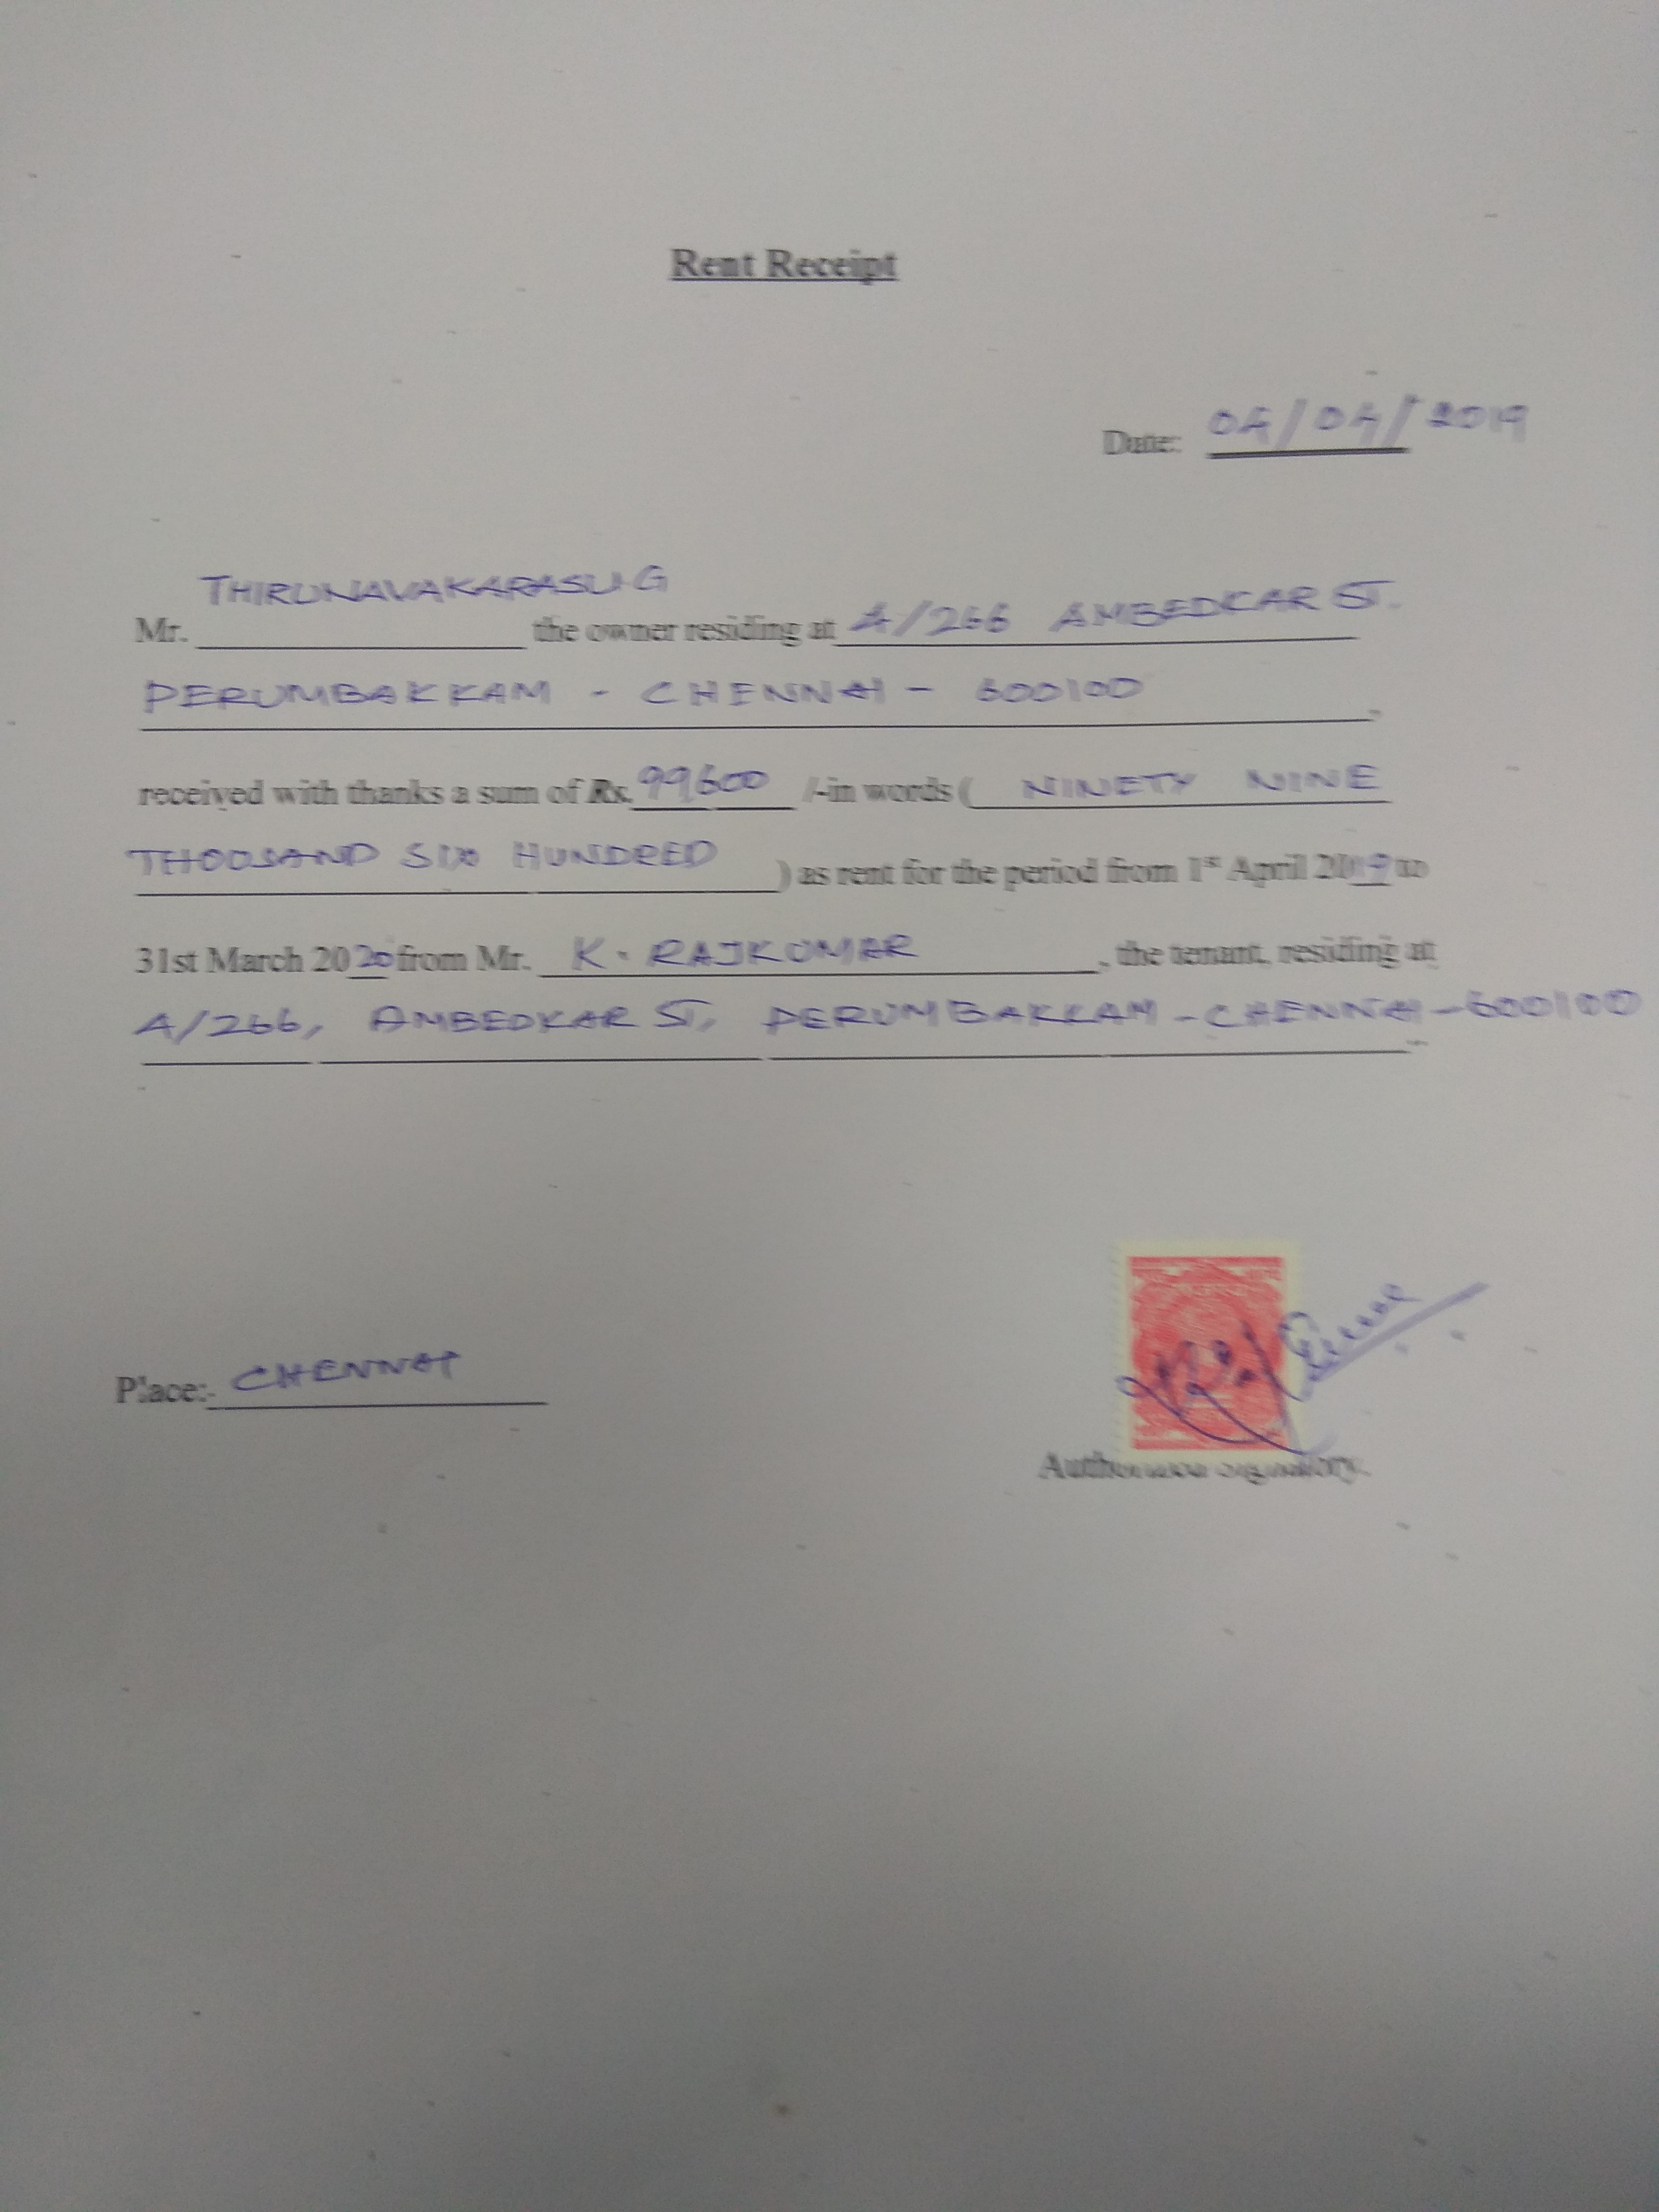 Rent Receipt
Date: 04/04/2019
THIRUNAVAKARASU.G
Mr. the owner residing at 4/266 AMBEDKAR ST.
PERUMBAKKAM - CHENNAI - 600100
received with thanks a sum of Rs. 99,600 /-in words ( NINETY NINE
THOUSAND SIX HUNDRED ) as rent for the period from 1st April 2019 to
31st March 2020 from Mr. K. RAJKUMAR , the tenant, residing at
4/266, AMBEDKAR ST, PERUMBAKKAM - CHENNAI - 600100
Place:- CHENNAI
Authorized signatory.